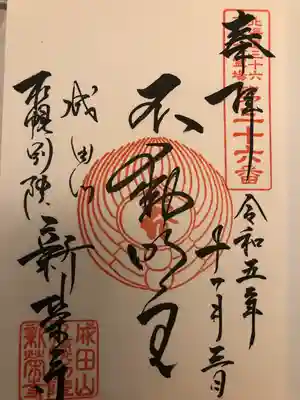 北海道三十六
不動尊霊場
第二十六番
奉拝
令和五年
十一月三日
不動明王
成田山
札幌別院 新榮寺
成田山
札幌別院
新榮寺